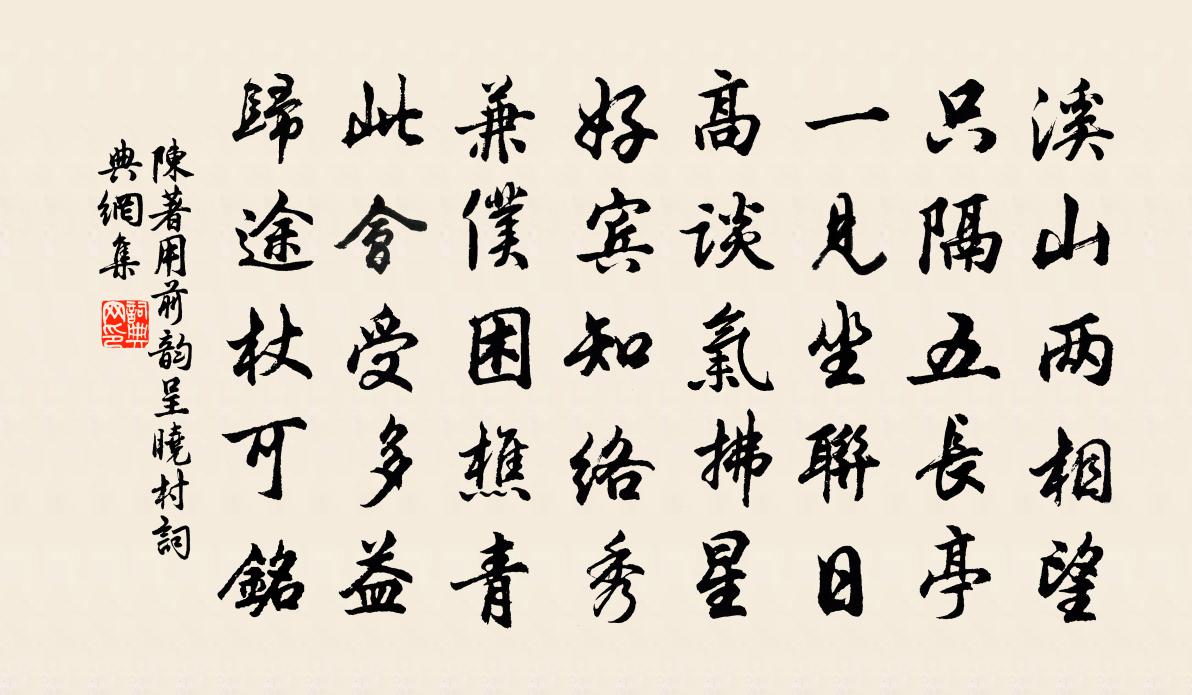 溪山两相望
只隔五長亭
一見坐聯日
高談氣拂星
好宾知络秀
兼僕困樵青
此會受多益
歸途杖可銘
陳著用前韵呈曉村詞
典網集
詞典网印